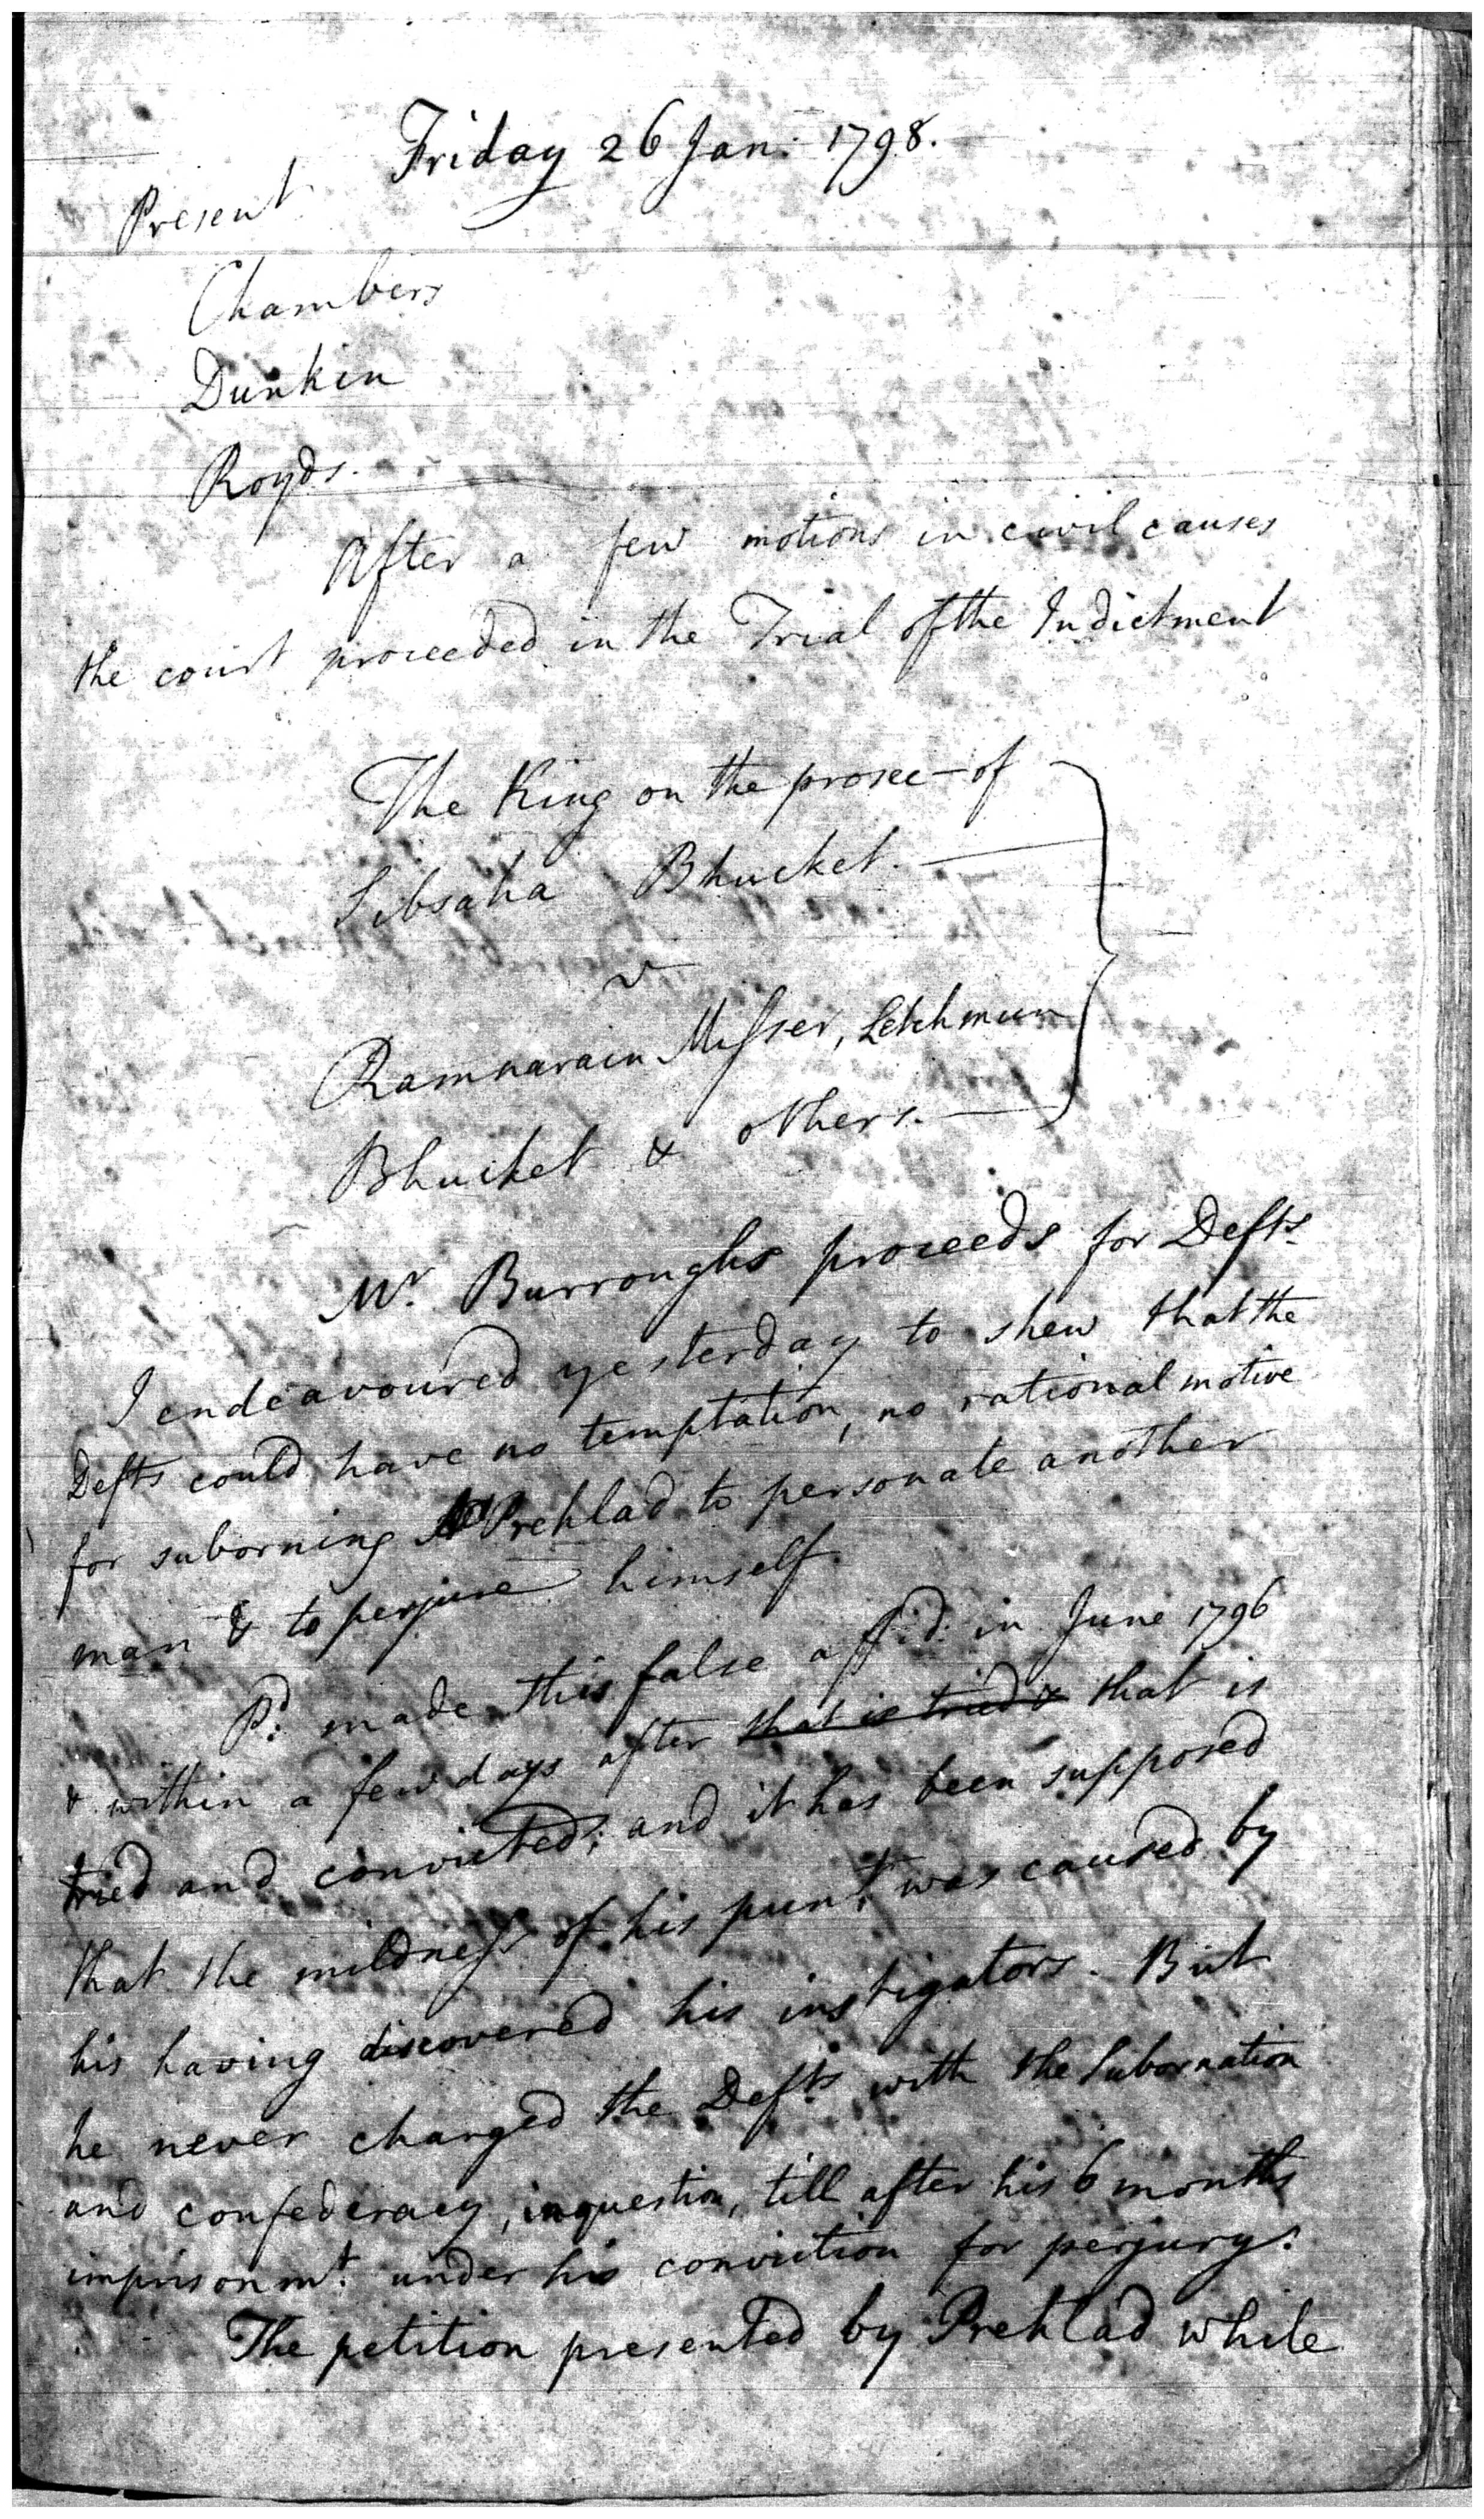 Friday 26 Jan: 1798.
Present
Chambers
Dunkin
Royds.
After a few motions in civil causes
the court proceeded in the Trial of the Indictment
The King on the prosec—of
Sibsaha Bhucket.
v
Ramnarain Misser, Letchmun
Bhucket & others.
Mr. Burroughs proceeds for Defts.
I endeavoured yesterday to shew that the
Defts could have no temptation, no rational motive
for suborning Prehlad to personate another
man & to perjure himself.
Pd. made this false affid: in June 1796
& within a few days after that is tried & that is
tried and convicted; and it has been supposed
that the mildness of his punt. was caused by
his having discovered his instigators. But
he never charged the Defts with the Subornation
and confederacy, in question, till after his 6 months
imprisonmt. under his conviction for perjury.
The petition presented by Prehlad while